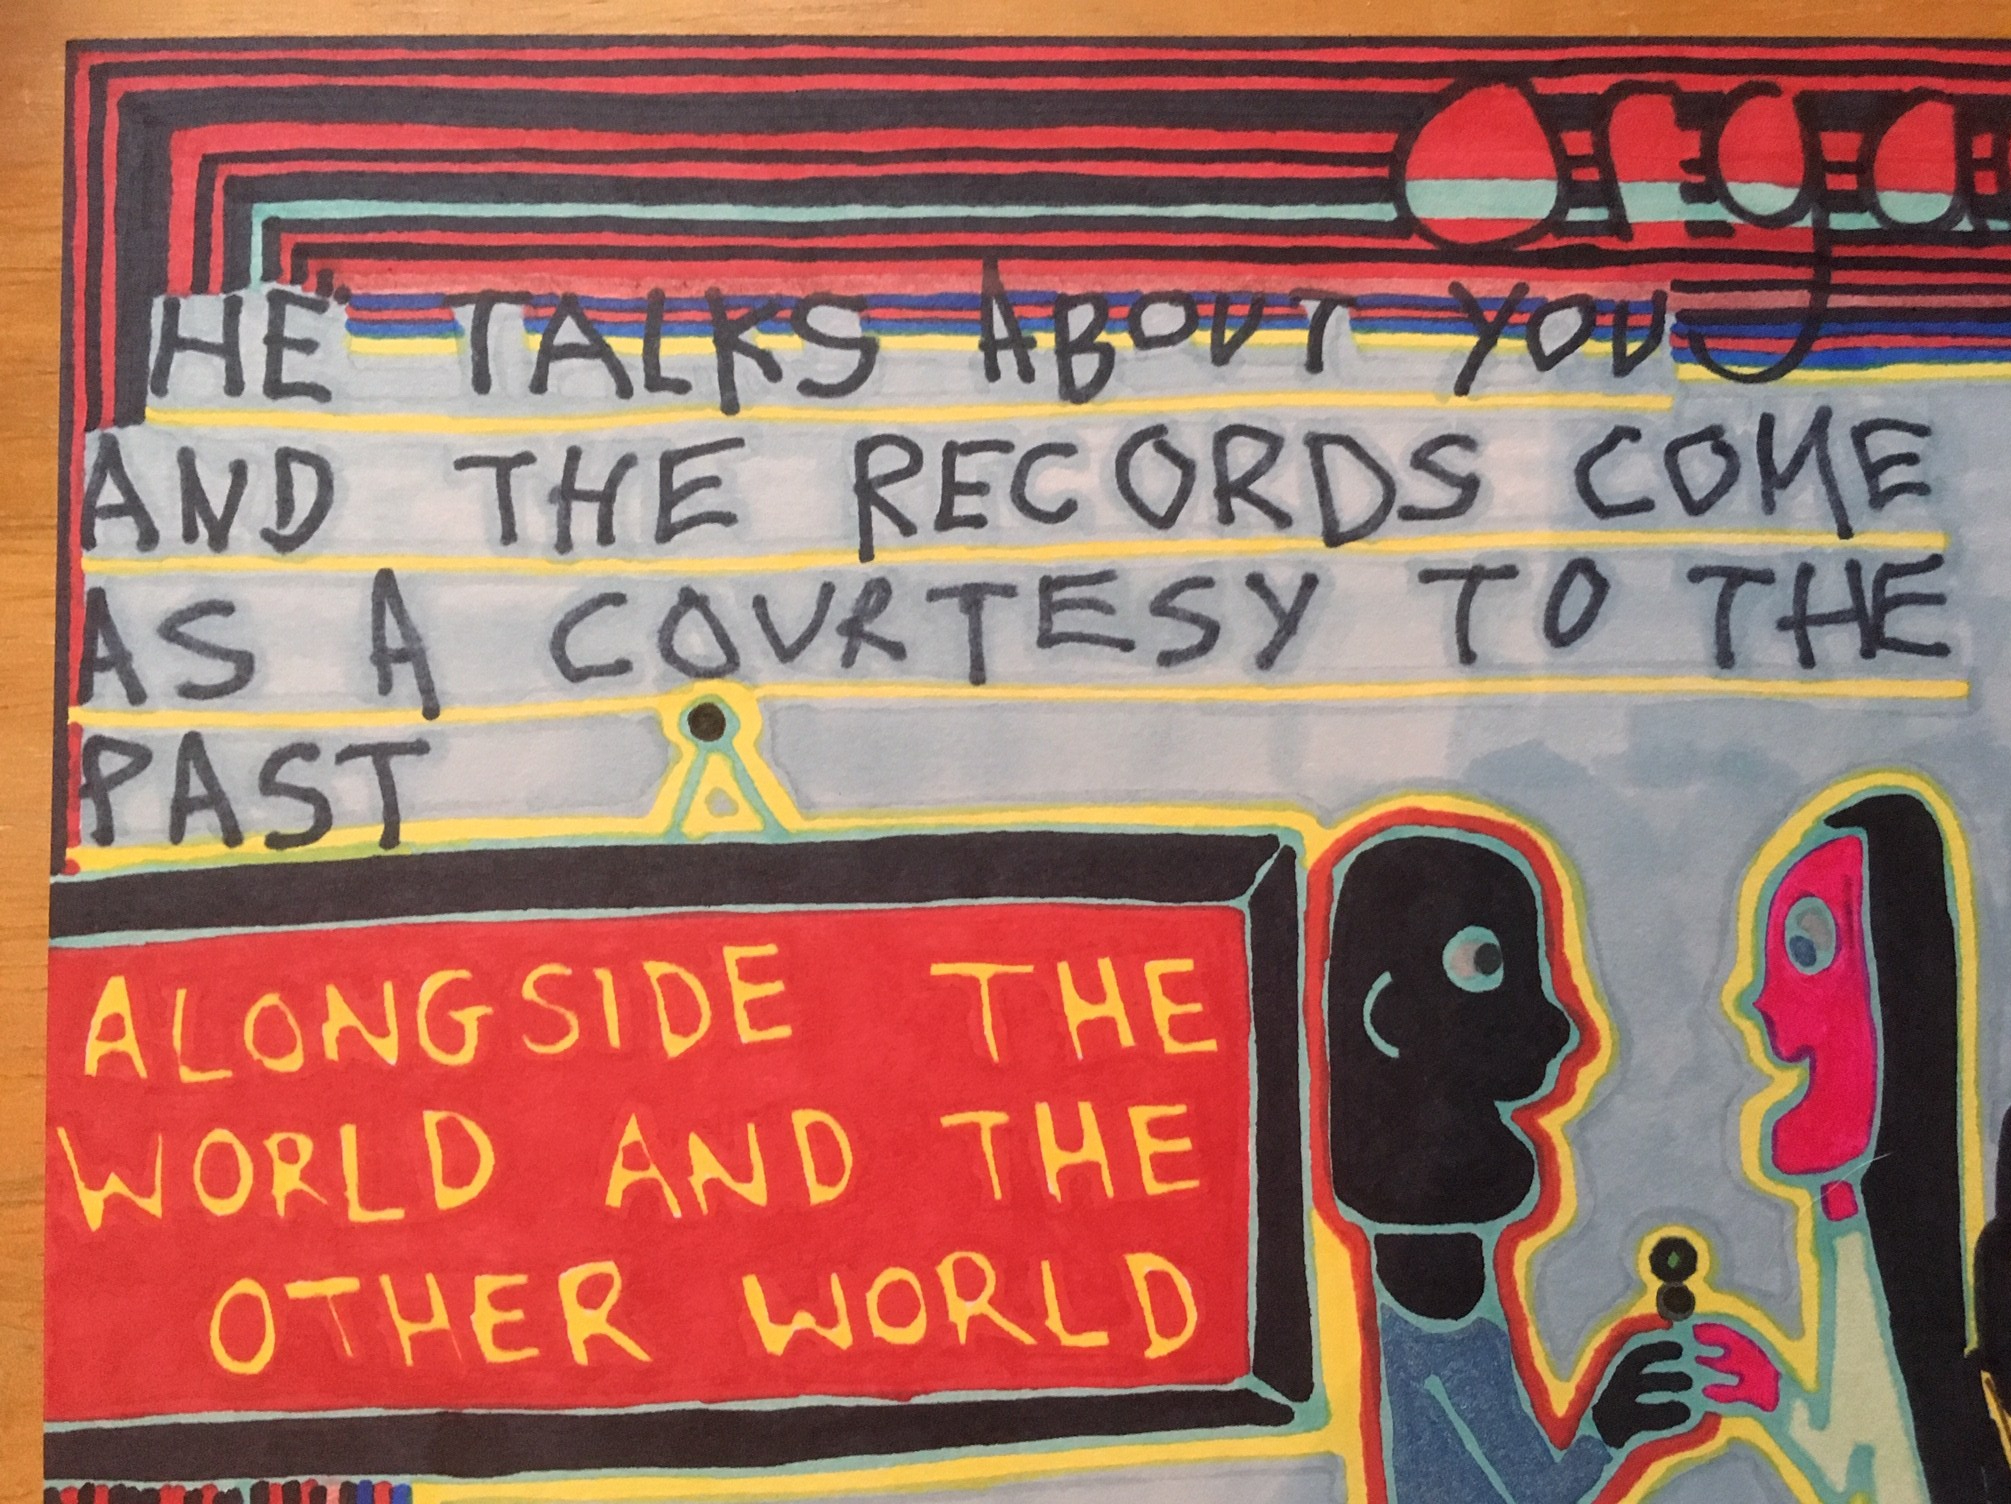 HE TALKS ABOUT YOU
AND THE RECORDS COME
AS A COURTESY TO THE
PAST
ALONGSIDE THE
WORLD AND THE
OTHER WORLD